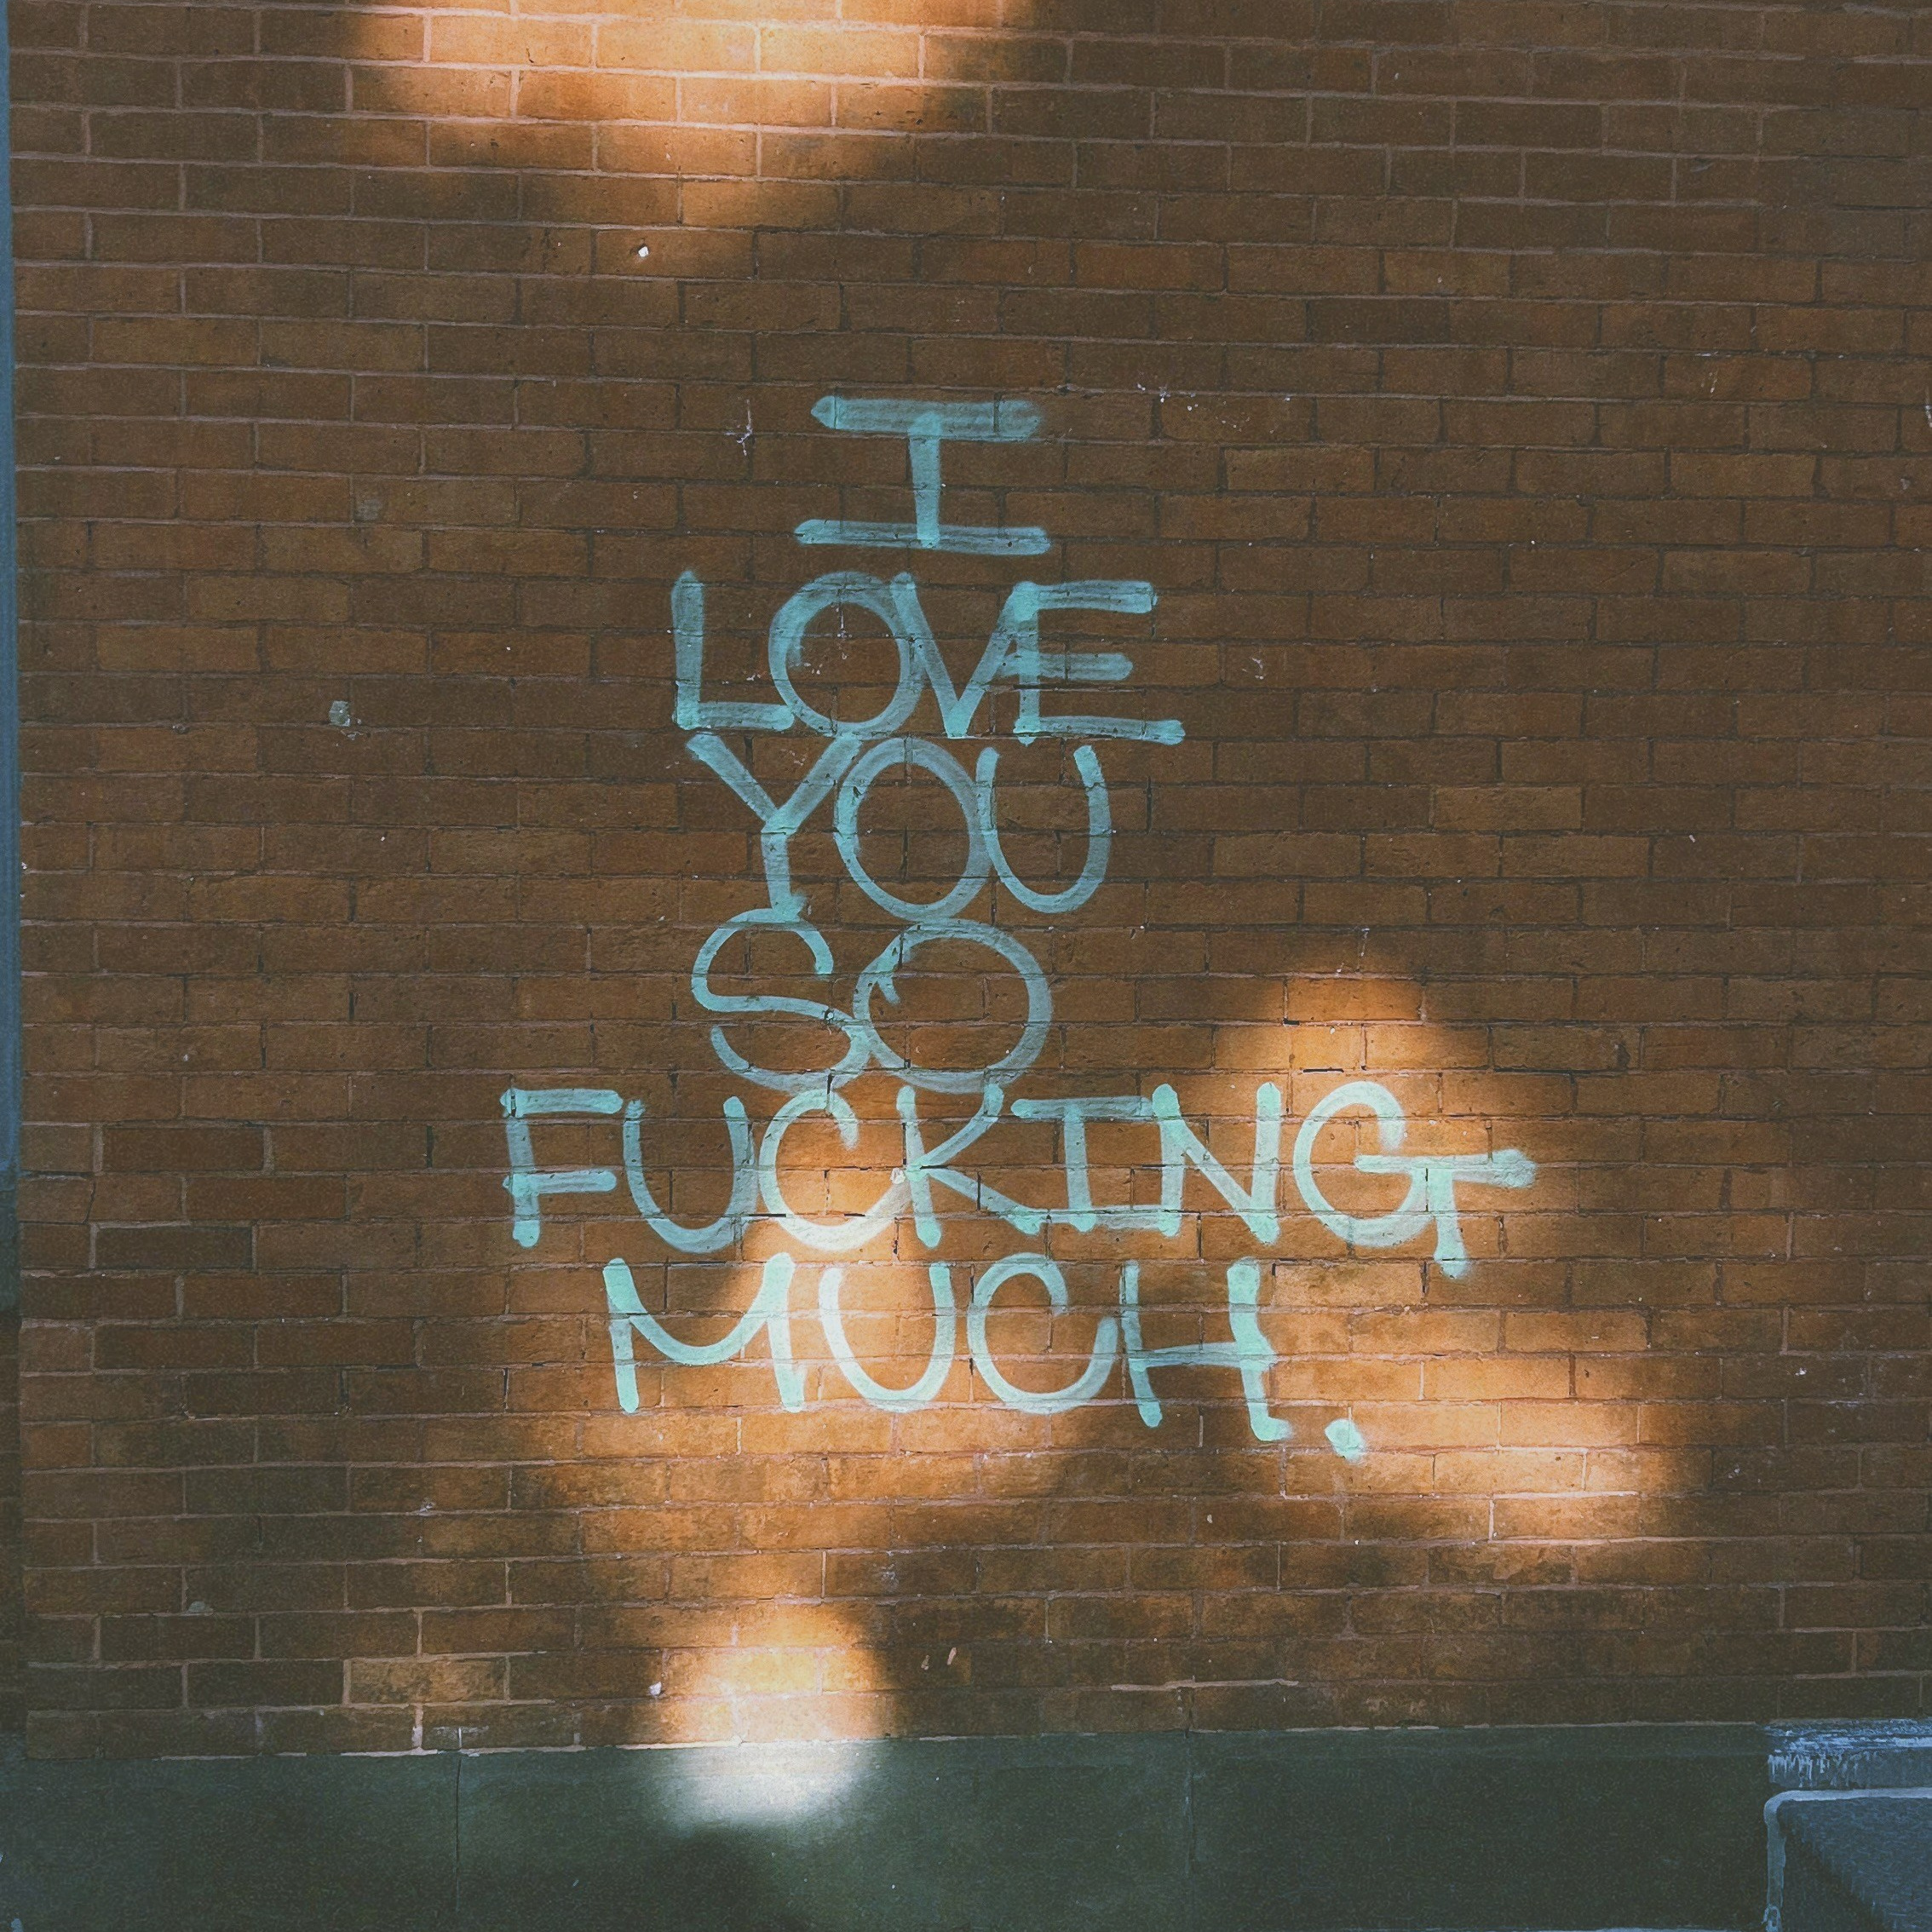 I
LOVE
YOU
SO
FUCKING
MUCH.